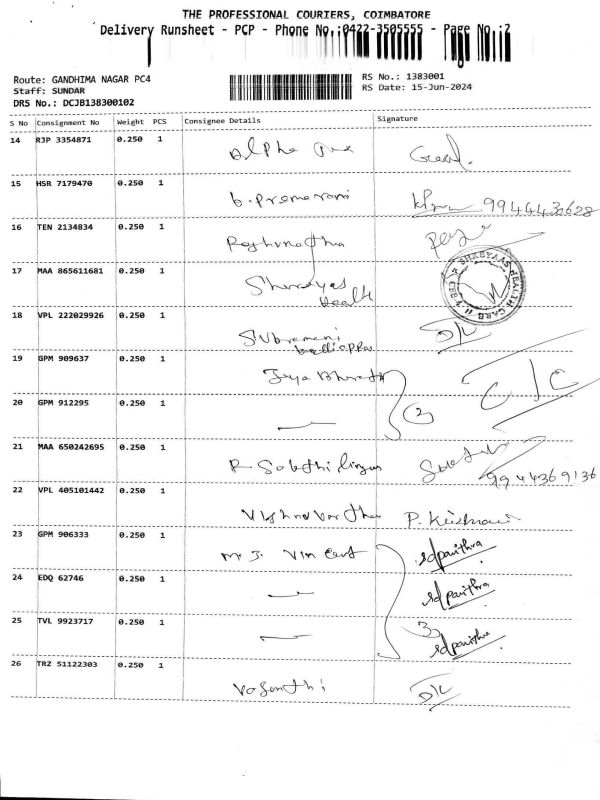 THE PROFESSIONAL COURIERS, COIMBATORE
Delivery Runsheet - PCP - Phone No.:0422-3505555 - Page No.:2
Route: GANDHIMA NAGAR PC4
Staff: SUNDAR
DRS No.: DCJB138300102
RS No.: 1383001
RS Date: 15-Jun-2024
S No Consignment No Weight PCS Consignee Details Signature
14 RJP 3354871 0.250 1 Alpha
15 HSR 7179470 0.250 1 b. Premarani 9944430628
16 TEN 2134834 0.250 1 Raghunatha
17 MAA 865611681 0.250 1 Shreeyas Health
SHREYAAS HEALTH CARE
18 VPL 222029926 0.250 1 D/L
19 GPM 909637 0.250 1 Jeya Bharath C/C
20 GPM 912295 0.250 1 2
21 MAA 650242695 0.250 1 R Sakthi lingam 9944369136
22 VPL 405101442 0.250 1 Vishnu Vardhan P. Krishnan
23 GPM 906333 0.250 1 Mr J. Vincent sd pavithra
24 EDQ 62746 0.250 1 sd pavithra
25 TVL 9923717 0.250 1 3 sd pavithra
26 TRZ 51122303 0.250 1 Vasanthi D/L